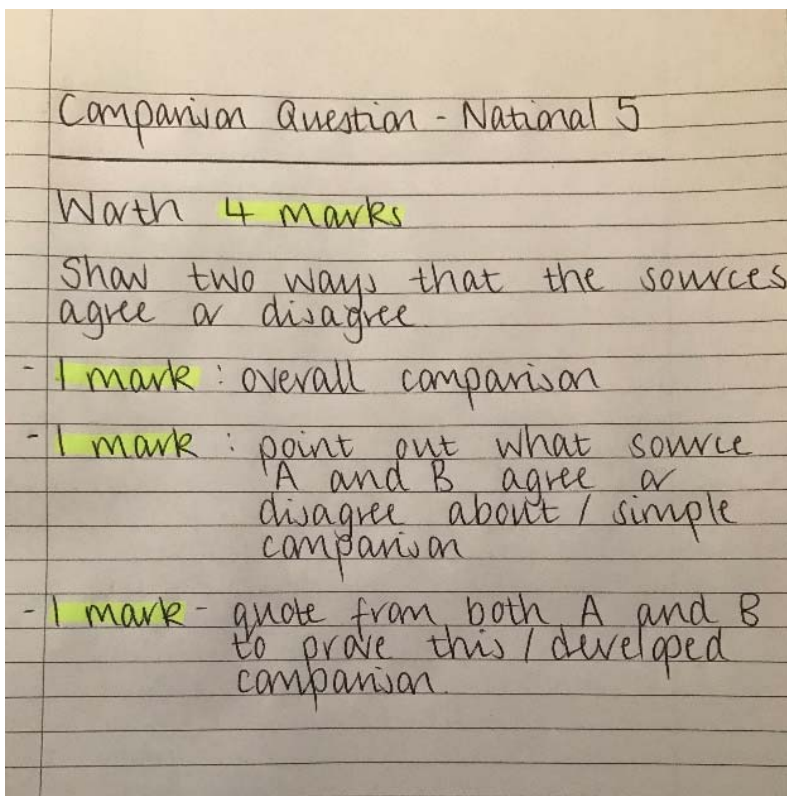 Comparison Question - National 5
Worth 4 marks
Show two ways that the sources
agree or disagree.
- 1 mark : overall comparison
- 1 mark : point out what source
A and B agree or
disagree about / simple
comparison
- 1 mark - quote from both A and B
to prove this / developed
comparison.